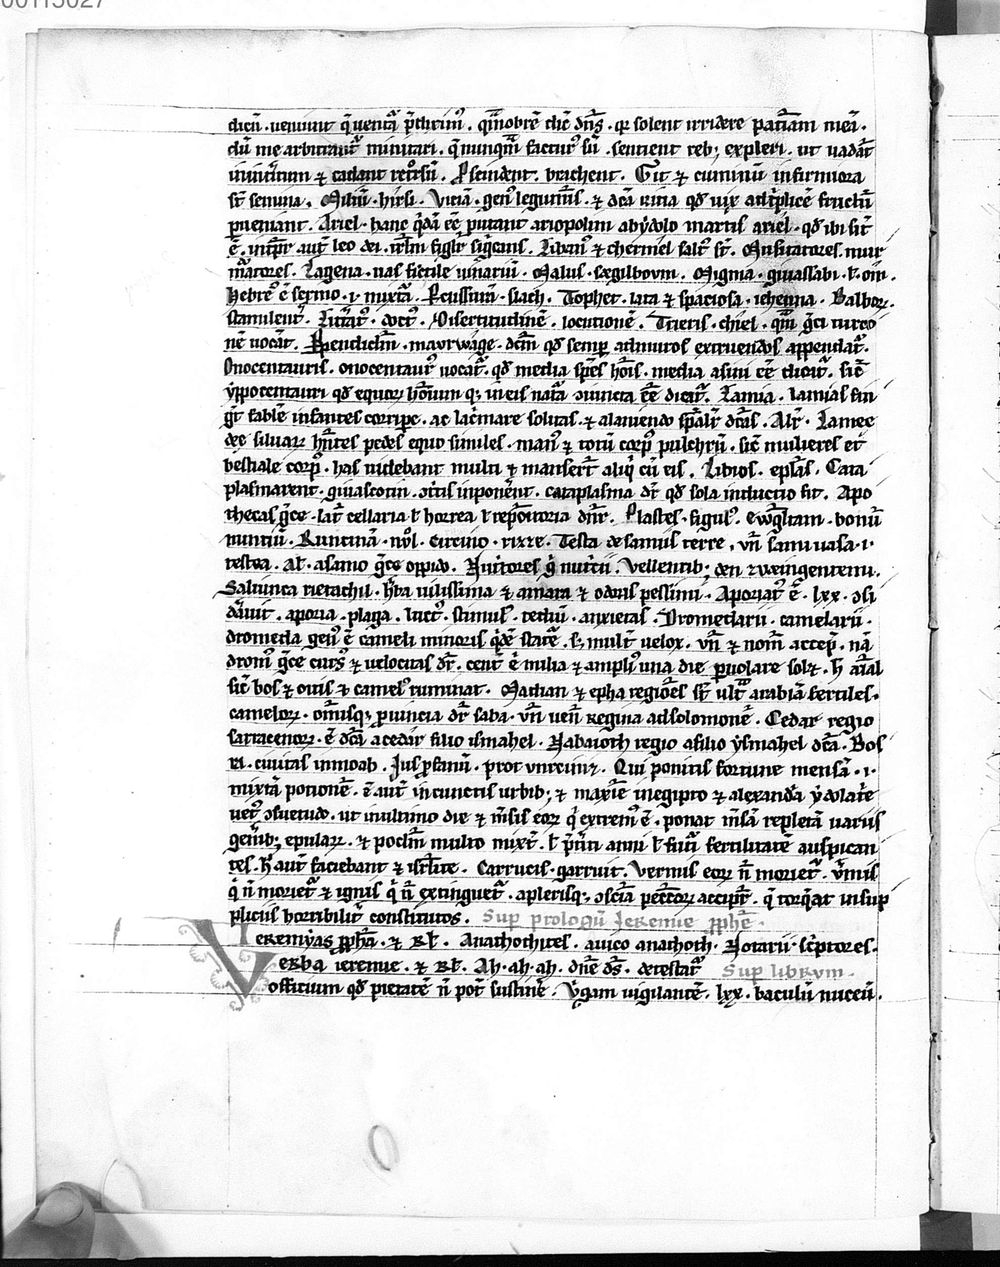 dicũ · ueniunt q̃ uentᷓa p̃dixim᷒ . qm̃obrẽ dic̃ dñs · qr solent irridere patĩam meã ·
cũ me arbitrant᷑ minitari . q̃ nunqm̃ factur᷒ sũ . sentient reb; expleri . ut uadãt
⁊ cadant ret᷑rsũ . P̃scindent . brachent . Git ⁊ ciminũ infirmiora
st̃ semina . Miliũ · hirsi . Viciã · gen᷒ leguminis · ⁊ dc̃a uicia qd̃ uix ad t̃plicẽ fructũ
pueniant . Ariel · hanc qⁱdã ẽẽ putant ariopolim abydolo martis ariel · qd̃ ibi sit̃
ẽ . aut̃ leo dei . irl̃m sigl̃r sig̃cans . Liban᷒ ⁊ chermel salt᷒ st̃ . Musitatores . mur
m̃atores . Lagena . uas fictile uinariũ . Malus · segilboum . Migma · giuassabi · ł · om̃ .
hebre᷒ ẽ sermo · i · mixta . · slach . Tophet . lata ⁊ spaciosa . iehenna . Balbor̃ .
stamilent᷑ . Litt̃at᷒ . doct᷒ . Disertitudinẽ . locutionẽ . Trieris · chiel . qm̃ g̃ci turco
nẽ uocãt . P̃pendiclm̃ · maurwage · dc̃m qd̃ semp ad muros extruendos appendat᷑ .
Onocentauris . onocentaur᷒ uocat᷑ . qd̃ media sp̃es hõis . media asini ẽẽ dicit᷑ . sic̃
yppocentauri qd̃ equor̃ hõinum q; in eis nat᷑a ɔiuncta ẽẽ dicit᷑ . Lamia . lamias fin
gt̃ fabl̃e infantes corripe . ac lac̃mare solitas . ⁊ a laniendo sp̃al̃r dc̃as . Alr̃ . Lamee
dee siluar̃ hñtes pedes equo similes . man᷒ ⁊ totũ corp᷒ pulchrũ . sic̃ mulieres et
bestiale corp᷒ . has uidebant multi ⁊ manser̃t aliqⁱ cũ eis . Libros . epl̃as . Cata
plasmarent . giuascotin . ɔt̃tis inponent . cataplasma dr̃ qd̃ sola inductio sit . Apo
thecas g̃ce · lat̃ cellaria ł horrea ł repõitoria dñr . Plastes . figul᷒ . Ewg̃liam . bonũ
nuntiũ . Runcina · nõl . Circino · rizze . Testa de samiis terre . uñ samia uasa · i ·
testea . Al̃ . a samo g̃ce oppido . Nutⁱtores g̃ nutcii . Vellentib; den zweingentemi .
Saliunca rietachil . hẽba uilissima ⁊ amara ⁊ odoris pessimi . Aporiat᷒ ẽ . lxx . ɔsi
dãuit . aporia . plaga . luct᷒ . stimul᷒ . tediũ . anxietas . Dromedarii . camelarii .
dromeda gen᷒ ẽ cameli minoris qⁱdẽ statẽ . s; mult᷒ uelox . uñ ⁊ nom̃ accep̃ . nã
drom᷒ g̃ce curs᷒ ⁊ uelocitas dr̃ . centũ ẽ milia ⁊ ampli᷒ una die puolare solz . h̃ aĩal
sic̃ bos ⁊ ouis ⁊ camel᷒ ruminat . Madian ⁊ epha regiões st̃ ult᷑ arabiã fertiles .
camelor̃ . om̃isq; puincia dr̃ saba . uñ uen̄ regina ad solomonẽ . Cedar regio
sarracenor̃ . ẽ dc̃a a cedar filio ismahel . Nabaioth regio a filio ysmahel dc̃a . Bos
ri . ciuitas in moab . Ius p̃fanũ . prot unreiniz . Qui ponitis fortune mensã · i ·
mixtã potionẽ . ẽ aut̃ in cunctis urbib; ⁊ maxĩe in egipto ⁊ alexand̃a ydolat̃e
uet᷒ ɔsuetudo . ut in ultimo die ⁊ m̃sis eor̃ qⁱ extrem᷒ ẽ . ponat m̃sã repletã uariis
gen̄ib; epular̃ . ⁊ poclm̃ multo mixt̃ . ł p̃t̃iti anni ł fut̃i fertilitatẽ auspican
tes . h̃ aut̃ faciebant ⁊ isrl̃ite . Carrucis . garruit . Vermis eor̃ ñ moriet᷑ . ũmis
qⁱ ñ moriet᷑ ⁊ ignis qⁱ ñ extinguet᷑ . a plerisq; ɔscĩa peccõr accipit᷑ . q̃ torq̃at in sup
pliciis horribilit᷑ constitutos . Sup prologũ Ieremie pphẽ .
Ieremyas pph̃a . ⁊ rł . Anathothites . auico anathoth . Notarii . sc̃ptores .
Verba ieremie . ⁊ rł . Ah . ah . ah . dñe ds̃ . detestat᷑ Sup librum .
officium qd̃ pietatẽ ñ pot̃ sustinẽ . V̓gam uigilantẽ . lxx . baculũ nuceũ .